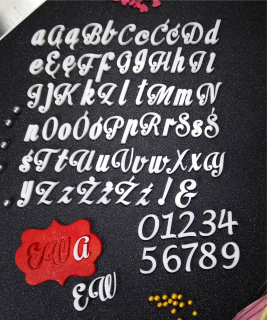 aąAąBbCcĆćDd
eEęĘfFgGHhIi
JjKkLlłŁMmN
nOoÓóPpRrSsŚ
śTtUuVvwXxy
YZzŻżŹź!&
01234
56789
EWA
EW